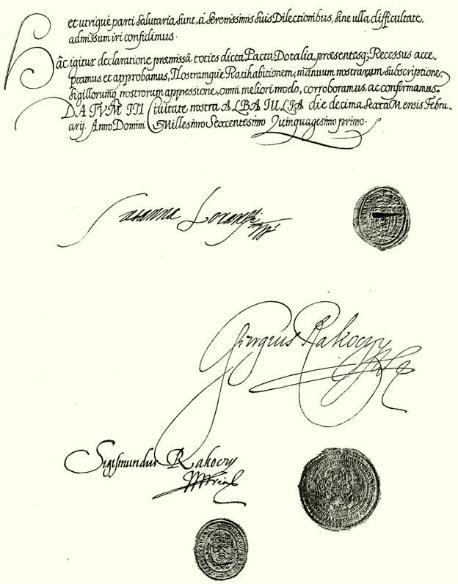 et utriq́ue parti salutaria sunt, a Serenissimis suis Dilectionibus, sine ulla difficultate,
admissum iri confidimus.
Hâc igitur declaratione præmissa toties dicta Pacta Dotalia, præsentesq́; Recessus acce-
ptamus et approbamus, Nostramque Ratihabitionem, manuum nostrarum subscriptione,
Sigillorumq́ nostrorum appressione, omni meliori modo, corroboramus ac conformamus.
DATVM IN Civitate nostra ALBA IULIA die decima Sexta Mensis Febru-
arij. Anno Domini Millesimo Sexcentesimo Quinquagesimo primo.
Susanna Lorantfi
Georgius Rakoczy
Sigismundus Rakoczy